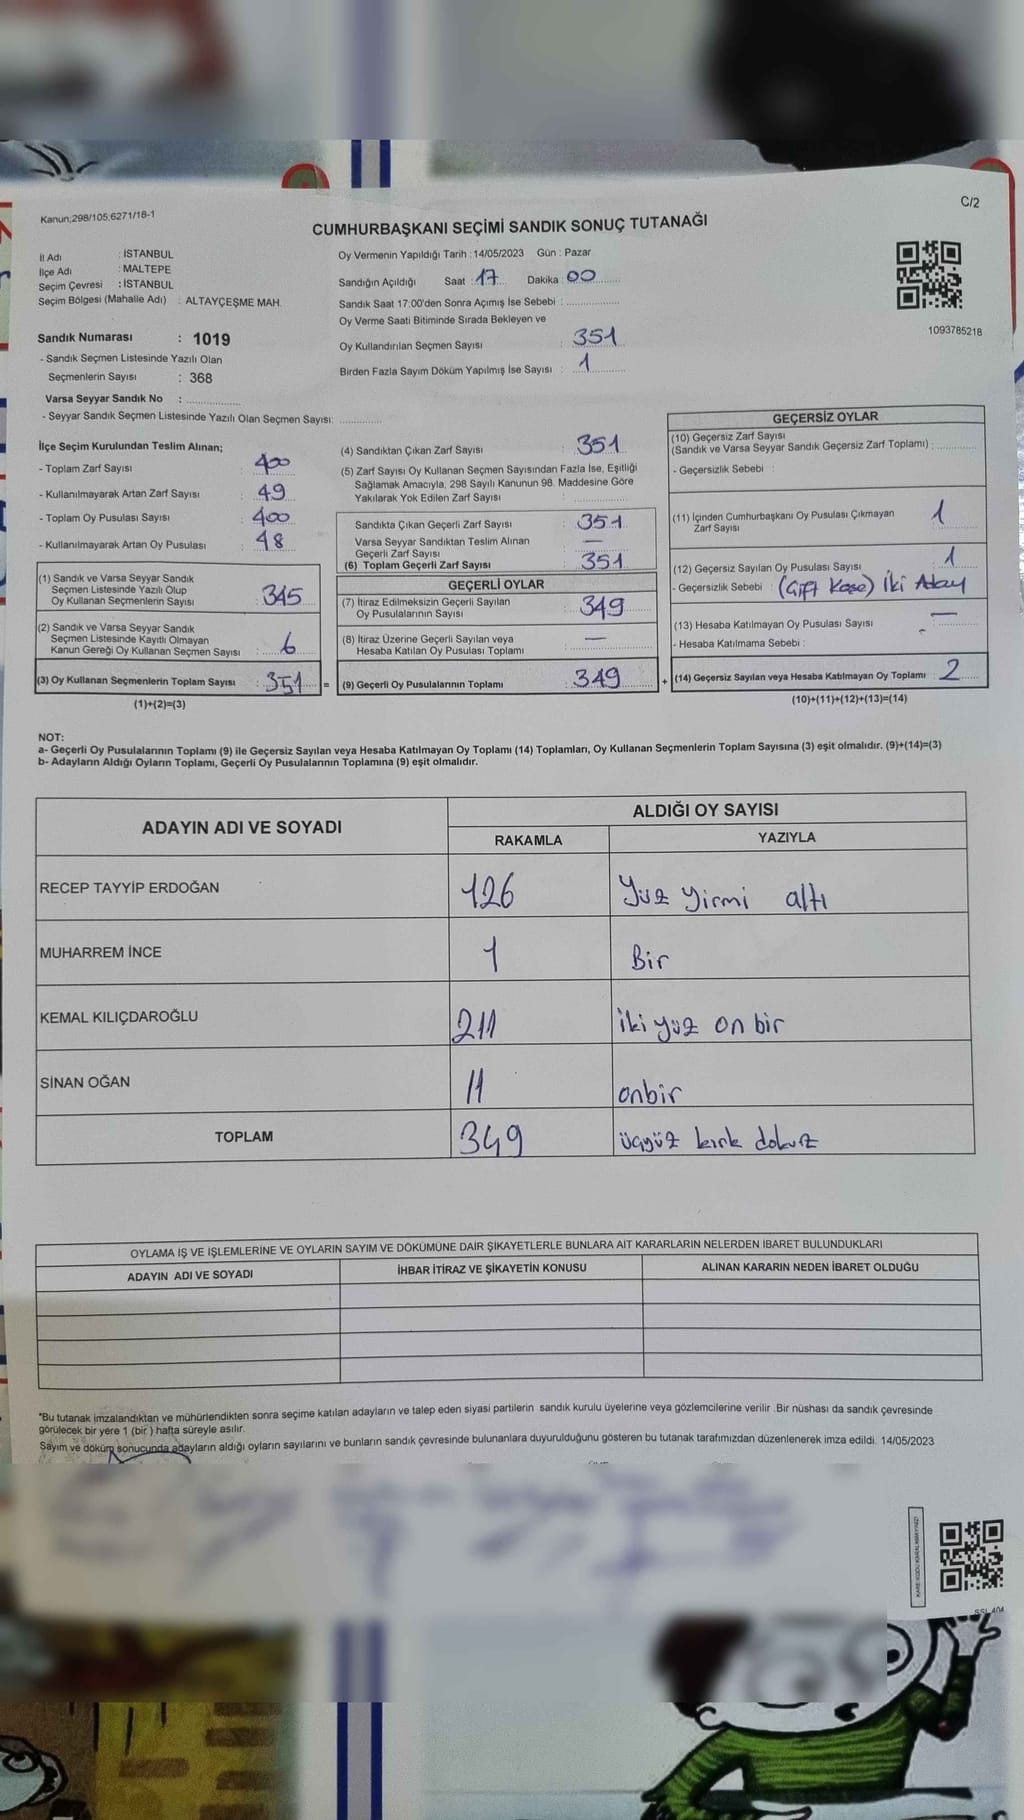 Kanun;298/105;6271/18-1
C/2
CUMHURBAŞKANI SEÇİMİ SANDIK SONUÇ TUTANAĞI
İl Adı : İSTANBUL
İlçe Adı : MALTEPE
Seçim Çevresi : İSTANBUL
Seçim Bölgesi (Mahalle Adı) : ALTAYÇEŞME MAH.
Sandık Numarası : 1019
- Sandık Seçmen Listesinde Yazılı Olan
Seçmenlerin Sayısı : 368
Varsa Seyyar Sandık No :
- Seyyar Sandık Seçmen Listesinde Yazılı Olan Seçmen Sayısı:
Oy Vermenin Yapıldığı Tarih : 14/05/2023 Gün : Pazar
Sandığın Açıldığı Saat : 17 Dakika : 00
Sandık Saat 17:00'den Sonra Açımış İse Sebebi :
Oy Verme Saati Bitiminde Sırada Bekleyen ve
Oy Kullandırılan Seçmen Sayısı : 351
Birden Fazla Sayım Döküm Yapılmış İse Sayısı : 1
1093785218
İlçe Seçim Kurulundan Teslim Alınan;
- Toplam Zarf Sayısı : 400
- Kullanılmayarak Artan Zarf Sayısı : 49
- Toplam Oy Pusulası Sayısı : 400
- Kullanılmayarak Artan Oy Pusulası : 48
(1) Sandık ve Varsa Seyyar Sandık
Seçmen Listesinde Yazılı Olup
Oy Kullanan Seçmenlerin Sayısı : 345
(2) Sandık ve Varsa Seyyar Sandık
Seçmen Listesinde Kayıtlı Olmayan
Kanun Gereği Oy Kullanan Seçmen Sayısı : 6
(3) Oy Kullanan Seçmenlerin Toplam Sayısı : 351 =
(1)+(2)=(3)
(4) Sandıktan Çıkan Zarf Sayısı : 351
(5) Zarf Sayısı Oy Kullanan Seçmen Sayısından Fazla İse, Eşitliği
Sağlamak Amacıyla, 298 Sayılı Kanunun 98. Maddesine Göre
Yakılarak Yok Edilen Zarf Sayısı :
Sandıkta Çıkan Geçerli Zarf Sayısı : 351
Varsa Seyyar Sandıktan Teslim Alınan
Geçerli Zarf Sayısı : —
(6) Toplam Geçerli Zarf Sayısı : 351
GEÇERLİ OYLAR
(7) İtiraz Edilmeksizin Geçerli Sayılan
Oy Pusulalarının Sayısı : 349
(8) İtiraz Üzerine Geçerli Sayılan veya
Hesaba Katılan Oy Pusulası Toplamı : —
(9) Geçerli Oy Pusulalarının Toplamı : 349 +
GEÇERSİZ OYLAR
(10) Geçersiz Zarf Sayısı
(Sandık ve Varsa Seyyar Sandık Geçersiz Zarf Toplamı) :
- Geçersizlik Sebebi :
(11) İçinden Cumhurbaşkanı Oy Pusulası Çıkmayan
Zarf Sayısı : 1
(12) Geçersiz Sayılan Oy Pusulası Sayısı : 1
- Geçersizlik Sebebi : (Çift Kaşe) İki Aday
(13) Hesaba Katılmayan Oy Pusulası Sayısı : —
- Hesaba Katılmama Sebebi :
(14) Geçersiz Sayılan veya Hesaba Katılmayan Oy Toplamı : 2
(10)+(11)+(12)+(13)=(14)
NOT:
a- Geçerli Oy Pusulalarının Toplamı (9) ile Geçersiz Sayılan veya Hesaba Katılmayan Oy Toplamı (14) Toplamları, Oy Kullanan Seçmenlerin Toplam Sayısına (3) eşit olmalıdır. (9)+(14)=(3)
b- Adayların Aldığı Oyların Toplamı, Geçerli Oy Pusulalarının Toplamına (9) eşit olmalıdır.
ADAYIN ADI VE SOYADI
ALDIĞI OY SAYISI
RAKAMLA YAZIYLA
RECEP TAYYİP ERDOĞAN 126 Yüz yirmi altı
MUHARREM İNCE 1 Bir
KEMAL KILIÇDAROĞLU 211 iki yüz on bir
SİNAN OĞAN 11 onbir
TOPLAM 349 üçyüz kırk dokuz
OYLAMA İŞ VE İŞLEMLERİNE VE OYLARIN SAYIM VE DÖKÜMÜNE DAİR ŞİKAYETLERLE BUNLARA AİT KARARLARIN NELERDEN İBARET BULUNDUKLARI
ADAYIN ADI VE SOYADI İHBAR İTİRAZ VE ŞİKAYETİN KONUSU ALINAN KARARIN NEDEN İBARET OLDUĞU
*Bu tutanak imzalandıktan ve mühürlendikten sonra seçime katılan adayların ve talep eden siyasi partilerin sandık kurulu üyelerine veya gözlemcilerine verilir .Bir nüshası da sandık çevresinde
görülecek bir yere 1 (bir ) hafta süreyle asılır.
Sayım ve döküm sonucunda adayların aldığı oyların sayılarını ve bunların sandık çevresinde bulunanlara duyurulduğunu gösteren bu tutanak tarafımızdan düzenlenerek imza edildi. 14/05/2023